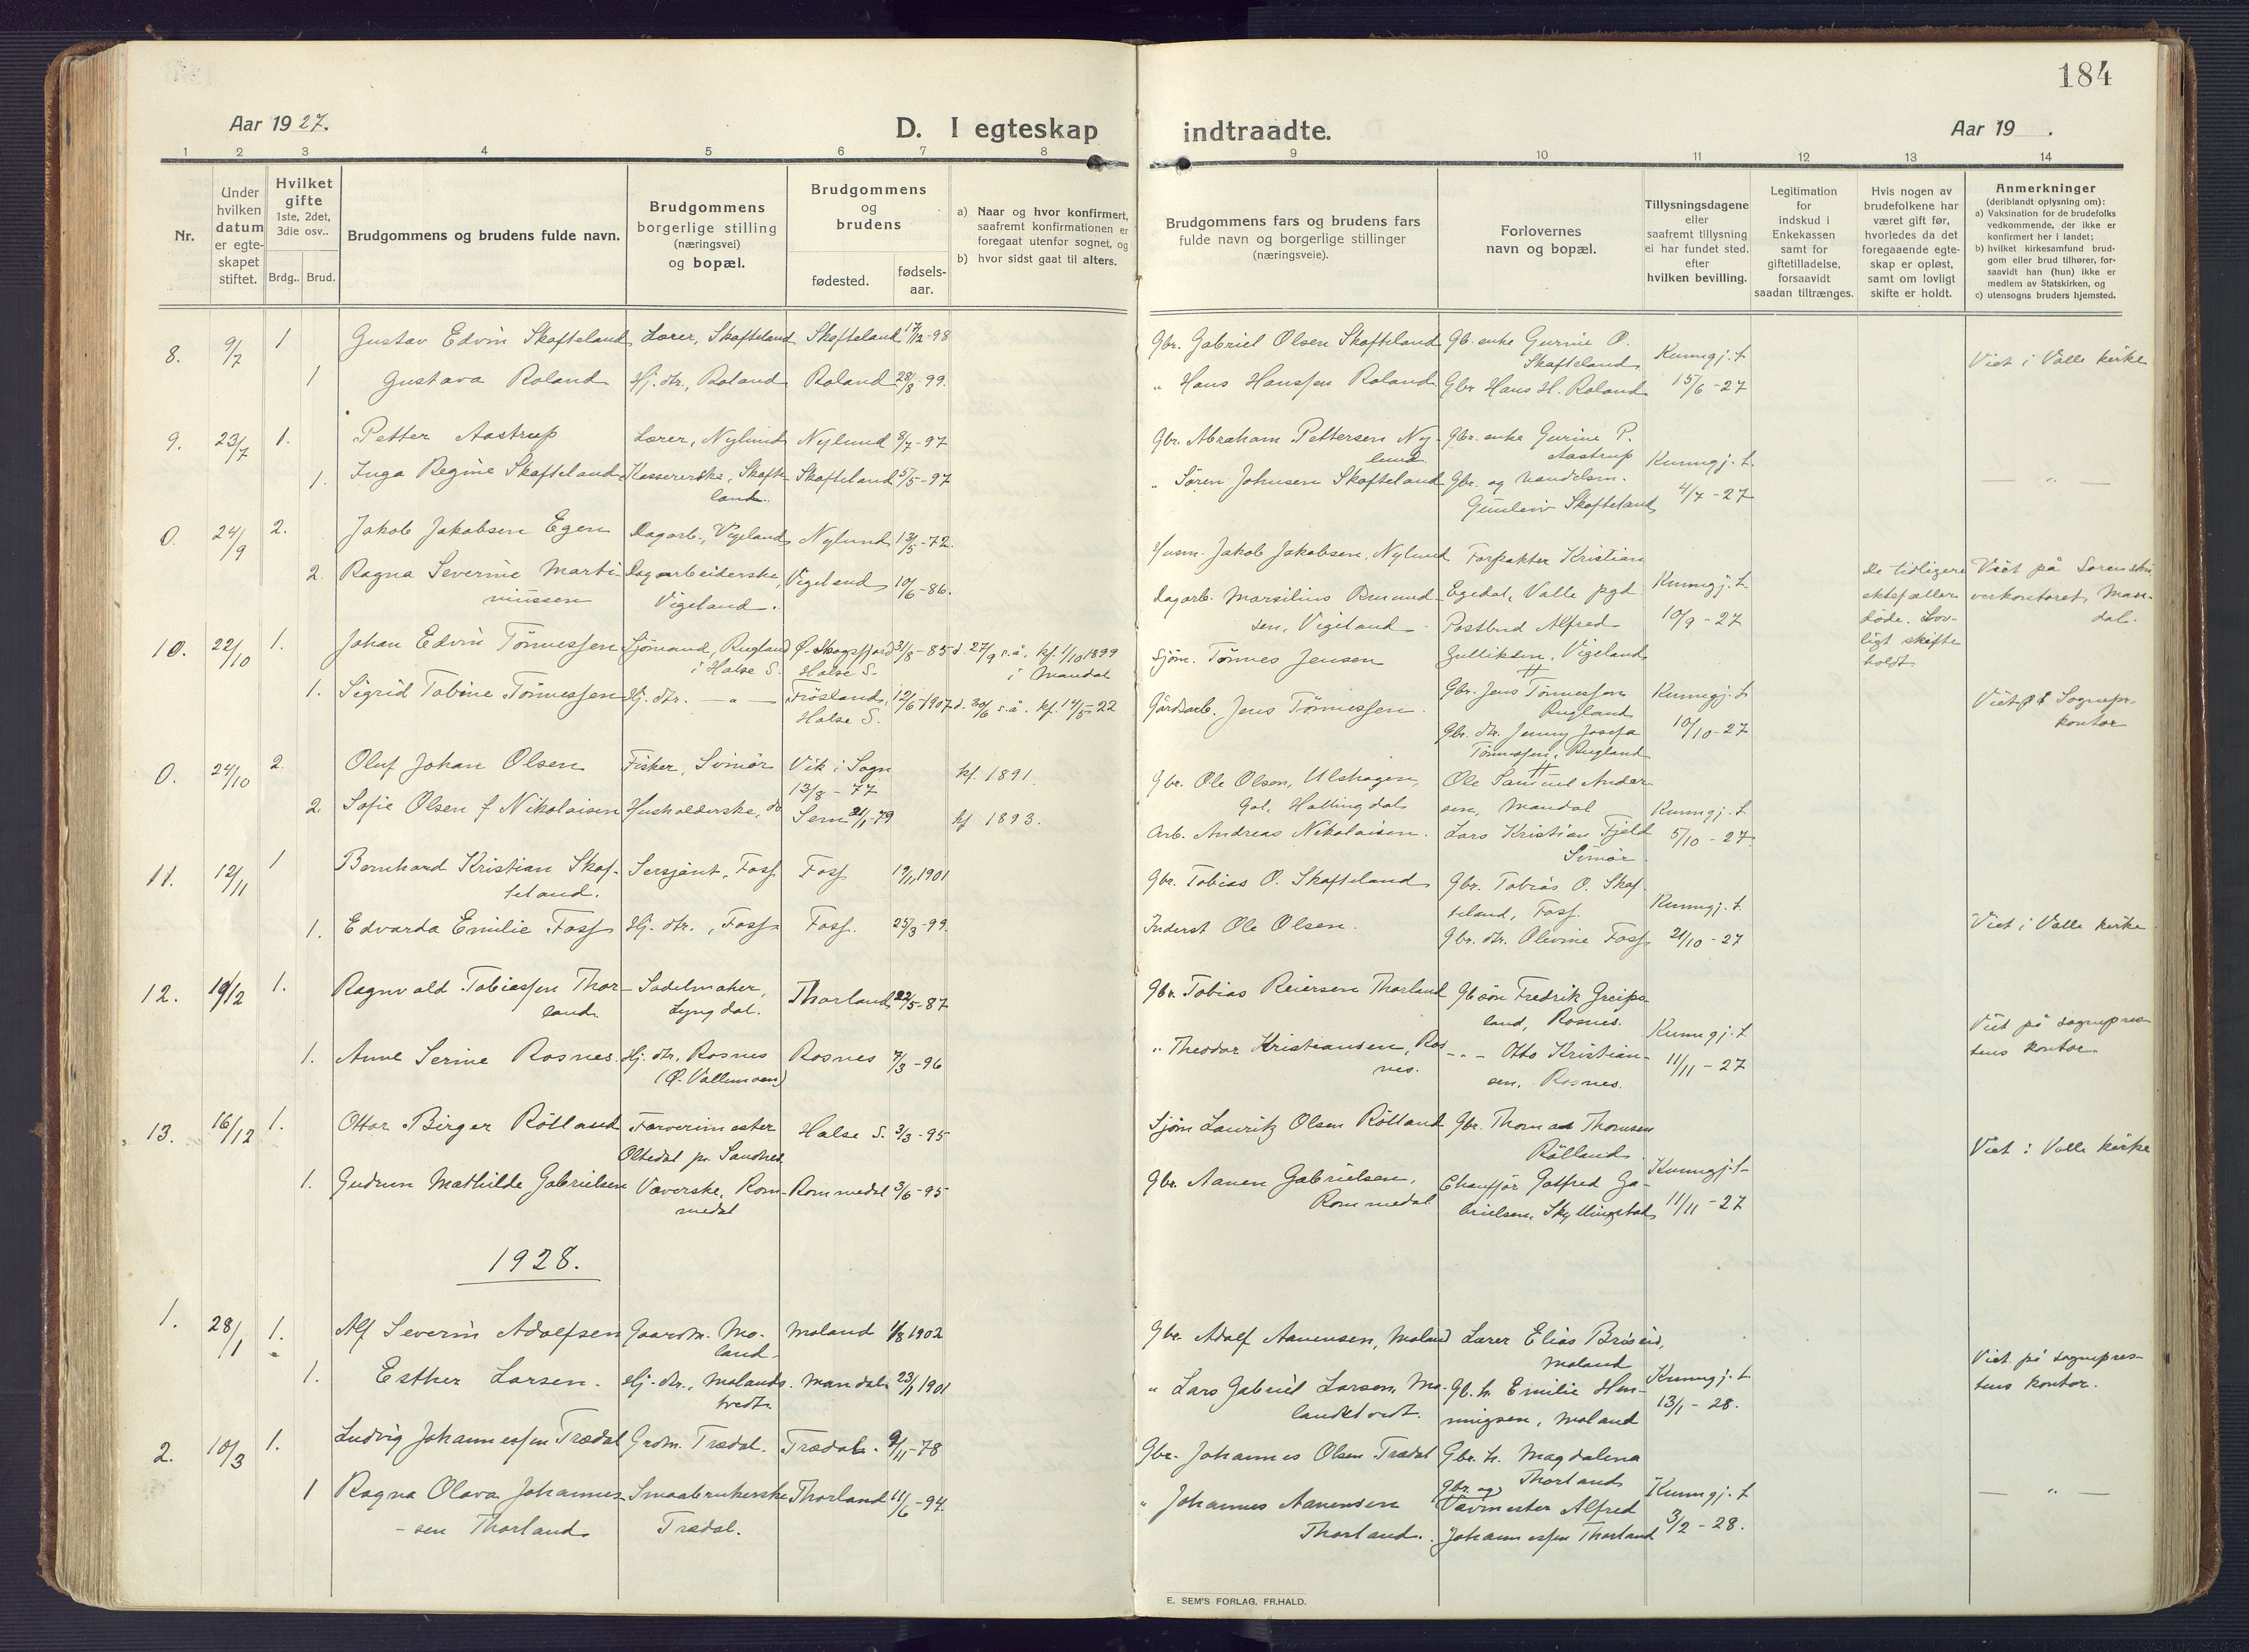 184
Aar 1927.
D. I egteskap indtraadte.
Aar 19 .
1 2 3 4 5 6 7 8 9 10 11 12 13 14
Nr.
Under hvilken datum er egteskapet stiftet.
Hvilket gifte
1ste, 2det, 3die osv..
Brdg.. Brud.
Brudgommens og brudens fulde navn.
Brudgommens borgerlige stilling (næringsvei) og bopæl.
Brudgommens og brudens
fødested.
fødselsaar.
a) Naar og hvor konfirmert, saafremt konfirmationen er foregaat utenfor sognet, og
b) hvor sidst gaat til alters.
Brudgommens fars og brudens fars fulde navn og borgerlige stillinger (næringsveie).
Forlovernes navn og bopæl.
Tillysningsdagene eller saafremt tillysning ei har fundet sted, efter hvilken bevilling.
Legitimation for indskud i Enkekassen samt for giftetilladelse, forsaavidt saadan tiltrænges.
Hvis nogen av brudefolkene har været gift før, hvorledes da det foregaaende egteskap er opløst, samt om lovligt skifte er holdt.
Anmerkninger
(deriblandt oplysning om):
a) Vaksination for de brudefolks vedkommende, der ikke er konfirmert her i landet;
b) hvilket kirkesamfund brudgom eller brud tilhører, forsaavidt han (hun) ikke er medlem av Statskirken, og
c) utensogns bruders hjemsted.
8. 9/7 1 Gustav Edvin Skofteland Lærer, Skofteland Skofteland 17/12-98 Gbr. Gabriel Olsen Skofteland Gb. enke Gurine O. Skofteland Kunngj. f. 15/6-27 Viet i Valle kirke
1 Gustava Roland Hj. dtr., Roland Roland 28/8-99. " Hans Hanssen Roland Gbr Hans H. Roland
9. 23/7 1. Petter Aastrup Lærer, Nylund Nylund 8/7-97 Gbr. Abraham Pettersen Nylund Gbr. enke Gurine P. Aastrup Kunngj. f. 4/7-27 — " —
1. Inga Regine Skofteland Kassererske, Skofteland. Skofteland 5/5-97 " Søren Johnsen Skofteland Gbr. og handelsm. Gunleiv Skofteland
0. 24/9 2. Jakob Jakobsen Egen Dagarb., Vigeland Nylund 13/5-72. Husm. Jakob Jakobsen, Nylund Forpakter Kristian Egedal, Valle pgd Kunngj. f. 10/9-27 De tidligere ektefæller døde. Lovligt skifte holdt Viet på Sorenskriverkontoret, Mandal.
2. Ragna Severine Martiniussen Dagarbeiderske, Vigeland. Vigeland 10/6-86. Dagarb. Marsilius Amundsen, Vigeland Postbud Alfred Gulliksen, Vigeland
10. 22/10 1. Johan Edvin Tønnessen Sjømand, Rugland i Halse S. P. Skogsfjord Halse S. 31/8-85 d. 27/9 s.å. kf. 1/10 1899 i Mandal Sjøm. Tønnes Jensen Gbr. Jens Tønnessen Rugland Kunngj. f. 10/10-27 Viet på Sognepr. kontor
1. Sigrid Tobine Tønnessen Hj. dtr. — " — Frøsland, Halse S. 12/6-1907 d. 30/6 s.å. kf. 14/5-22 Gårdsarb. Jens Tønnessen. Gbr. dtr. Jenny Josefa Tønnessen, Rugland
0. 24/10 2. Oluf Johan Olsen Fisker, Svinør Vik i Sogn 13/8-77 kf. 1891. Gbr. Ole Olsen, Ulshagen, Gol, Hallingdal Ole Samuel Andersen, Mandal Kunngj. f. 5/10-27
2. Sofie Olsen f Nikolaisen Husholderske, do Sem 21/1-79 kf 1893. Arb. Andreas Nikolaisen. Lars Kristian Fjeld Svinør
11. 12/11 1 Bernhard Kristian Skofteland. Sersjant, Foss Foss 19/11 1901 Gbr. Tobias O. Skofteland Gbr. Tobias O. Skofteland, Foss. Kunngj. f. 21/10-27 Viet i Valle kirke
1. Edvarda Emilie Foss Hj. dtr., Foss Foss. 25/3-99. Inderst Ole Olsen. Gbr. dtr. Olevine Foss
12. 19/12 1. Ragnvald Tobiassen Thorland. Sadelmaker, Lyngdal. Thorland 22/5-87 Gbr. Tobias Reiersen Thorland Gb søn Fredrik Greipsland, Rosnes. Kunngj. f. 11/11-27 Viet på sogneprestens kontor.
1. Anne Serine Rosnes. Hj. dtr. Rosnes (Ø. Vallemoen) Rosnes 7/3-96 " Theodor Kristiansen, Rosnes. - " - Otto Kristiansen, Rosnes.
13. 16/12 1. Ottar Birger Rölland Farverimester Oltedal pr. Sandnes Halse S. 3/3-95 Sjøm Lauritz Olsen Rölland Gbr. Thomas Thomsen Rölland. Kunngj. f. 11/11-27 Viet i Valle kirke
1. Gudrun Mathilde Gabrielsen Væverske, Rommedal Rommedal 3/6-95 Gbr. Aanen Gabrielsen, Rommedal Chauffør Gotfred Gabrielsen, Skyllingstad
1928.
1. 28/1 1. Alf Severin Adolfsen Gaardm. Moland Moland 1/8 1902 Gbr. Adolf Aanensen, Moland Lærer Elias Brøseid, Moland Kunngj. f. 13/1-28. Viet på sogneprestens kontor.
1. Esther Larsen. Hj. dtr., Molandstvedt. Mandal. 23/1 1901 " Lars Gabriel Larsen, Molandstvedt. Gb. h. Emilie Henningsen, Moland
2. 10/3 1. Ludvig Johannessen Trædal Grdm. Trædal. Trædal. 9/11-78 Gbr. Johannes Olsen Trædal Gbr. h. Magdalena Thorland Kunngj. f. 3/2-28. — " —
1 Ragna Olava Johannessen Thorland Smaabrukerske Trædal. Thorland 11/6-94. " Johannes Aanensen Thorland. Gbr. og Vævmester Alfred Johannessen Thorland
E. SEM'S FORLAG, FR.HALD.